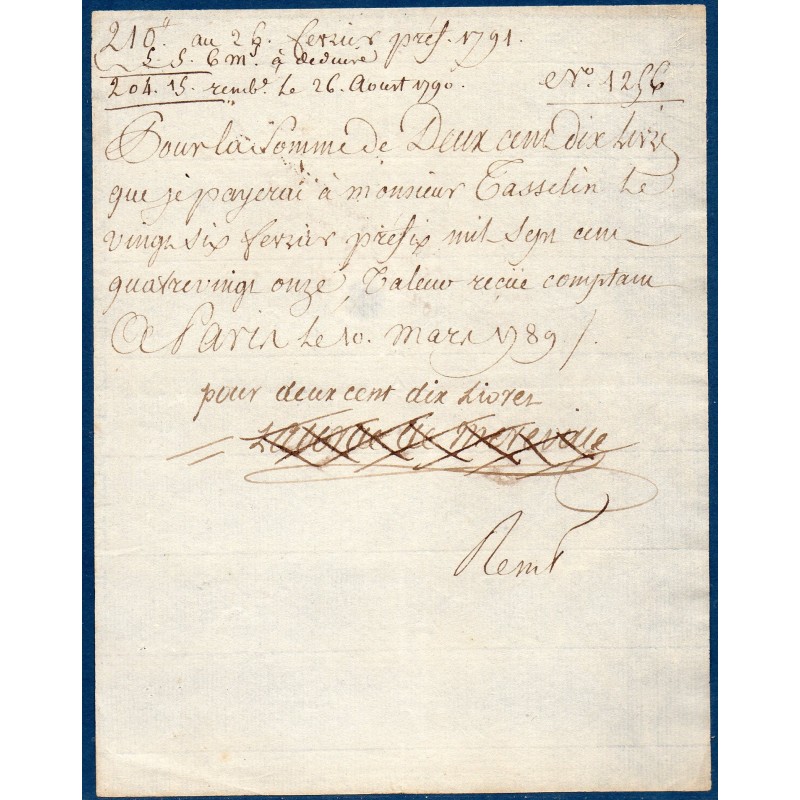 210ᵗᵗ au 26. fevrier préf. 1791.
5. 5. 6 mˢ à deduire
204. 15. rembˢ. le 26. Aoust 1790.
Nº. 1256
Pour la somme de Deux cent dix livres
que je payerai à monsieur Tasselin le
vingt six fevrier préfix mil sept cent
quatrevingt onze, Valeur reçüe comptant
A Paris le 10. mars 1789 /.
pour deux cent dix livres
de
Remˢ